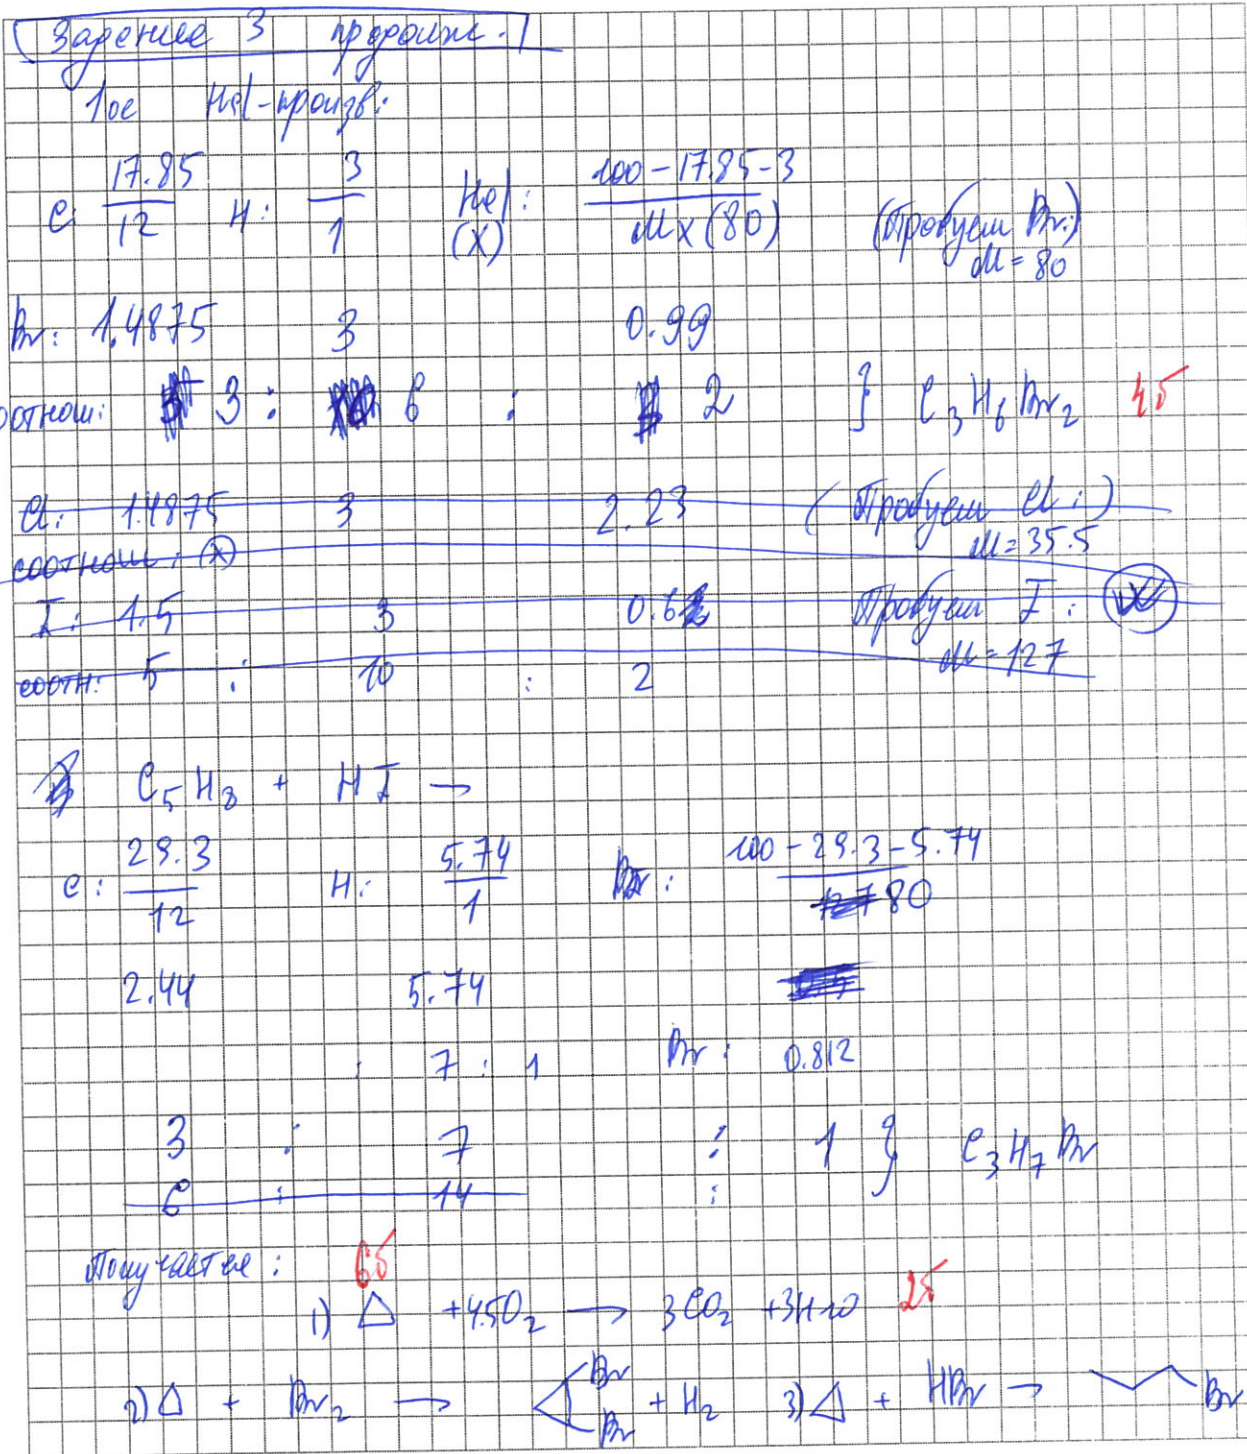 Задание 3 продолж.
1ое Hal-произв:
C: 17.85/12 H: 3/1 Hal: (X) 100-17.85-3/Mx(80) (Пробуем Br:) M=80
Br: 1.4875 3 0.99
соотнош: 3 : 6 : 2 } C3H6Br2 4б
Cl: 1.4875 3 2.23 (Пробуем Cl:) M=35.5
соотнош: (X)
I: 1.5 3 0.62 Пробуем I: M=127
соотн: 5 : 10 : 2
C5H8 + HI →
C: 29.3/12 H: 5.74/1 Br: 100-29.3-5.74/80
2.44 5.74
: 7 : 1 Br: 0.812
3 : 7 : 1 } C3H7Br
6 : 14 :
Получается: 6б
1) △ +4.5O2 → 3CO2 +3H2O 2б
2) △ + Br2 → Br Br + H2 3) △ + HBr → Br